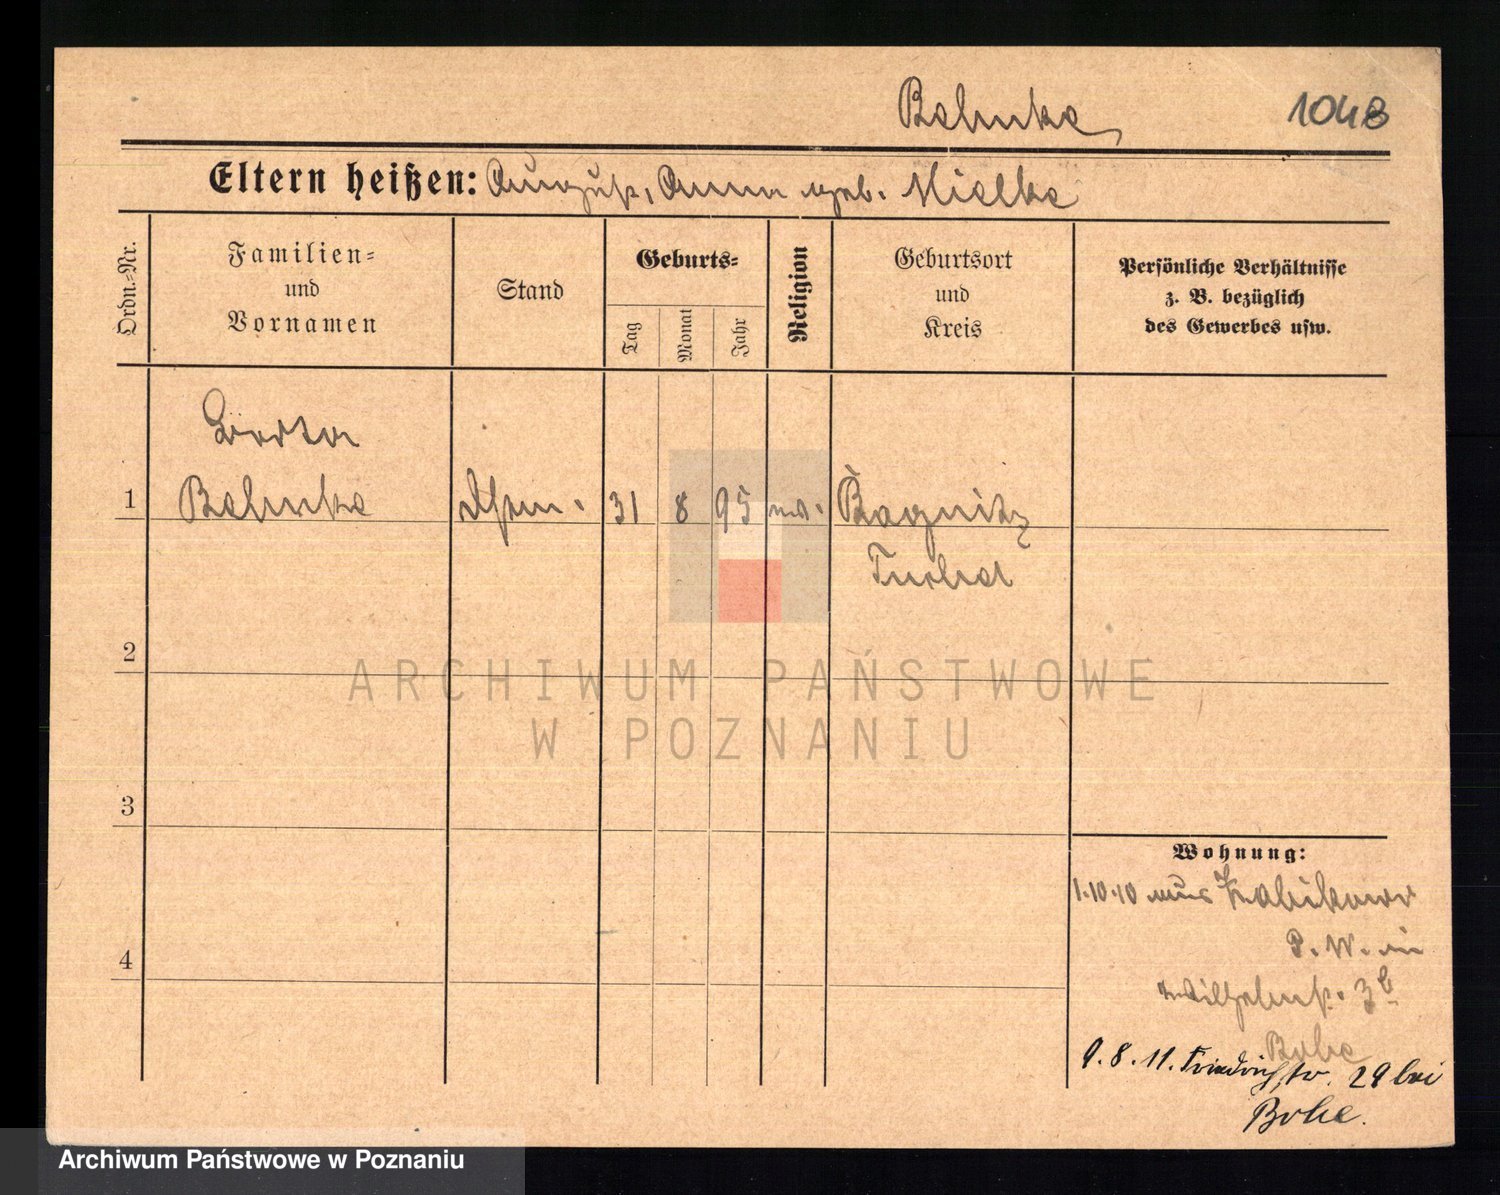 Behnke
1048
Eltern heißen: August, Anna geb. Mielke
Ordn.-Nr.
Familien-
und
Vornamen
Stand
Geburts-
Tag
Monat
Jahr
Religion
Geburtsort
und
Kreis
Persönliche Verhältnisse
z. B. bezüglich
des Gewerbes usw.
1
Behnke
31
8
95
ev.
Bagnitz
Tuchel
2
3
4
Wohnung:
1.10.10 aus Zabikowo
P. W. in
Wilhelmstr. 3b
9. 8. 11. Friedrichstr. 29 bei
ARCHIWUM PAŃSTWOWE
W POZNANIU
Archiwum Państwowe w Poznaniu